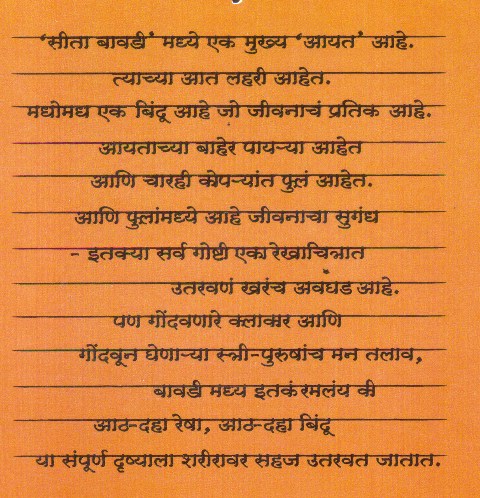 ‘सीता बावडी’ मध्ये एक मुख्य ‘आयत’ आहे.
त्याच्या आत लहरी आहेत.
मधोमध एक बिंदू आहे जो जीवनाचं प्रतिक आहे.
आयताच्या बाहेर पायऱ्या आहेत
आणि चारही कोपऱ्यांत फुलं आहेत.
आणि फुलांमध्ये आहे जीवनाचा सुगंध
- इतक्या सर्व गोष्टी एका रेखाचित्रात
उतरवणं खरंच अवघड आहे.
पण गोंदवणारे कलाकार आणि
गोंदवून घेणाऱ्या स्त्री-पुरुषांच मन तलाव,
बावडी मध्य इतकं रमलंय की
आठ-दहा रेषा, आठ-दहा बिंदू
या संपूर्ण दृष्याला शरीरावर सहज उतरवत जातात.